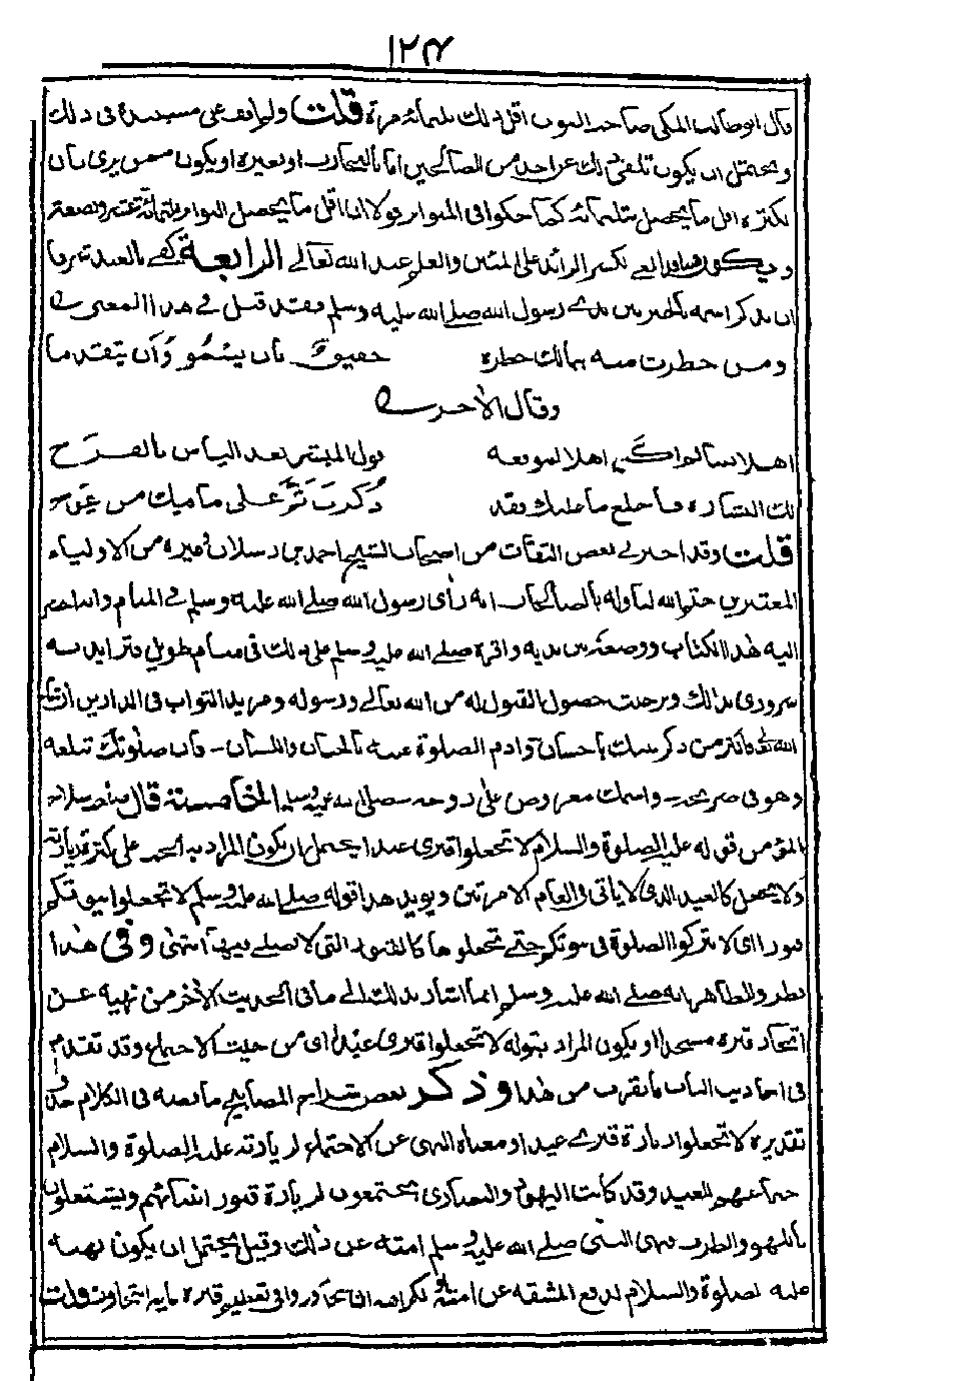 ١٢٤
قال ابو طالب المكي صاحب القوت اقل ذلك ثلثمائة مرة قلت ولم اقف على مستنده في ذلك
ويحتمل ان يكون تلقى ذلك عن احد من الصالحين اما بالتجارب او بغيره او يكون ممن يرى بان
الكثرة اقل ما يحصل بثلثمائة كما حكوا في المتواتر قولا ان اقل ما يحصل التواتر بثلثمائة وبضعة عشر
ويكون هنا الغى الكسر الزائد على المئين والعلم عند الله تعالى الرابعة كفى بالعبد شرفا
ان يذكر اسمه بالخير بين يدي رسول الله صلى الله عليه وسلم وقد قيل في هذا المعنى
ومن خطرت منه ببالك خطرة حقيق بان يسمو وان يتقدما
وقال الاخر
اهلا بما لم اكن اهلا لموقعه قول المبشر بعد الياس بالفرج
لك البشارة فاخلع ما عليك فقد ذكرت ثم على ما فيك من عوج
قلت وقد اخبرني بعض الثقات من اصحاب الشيخ احمد بن رسلان وغيره من الاولياء
المعتبرين ختم الله لنا وله بالصالحات انه رأى رسول الله صلى الله عليه وسلم في المنام وانه احضر
اليه هذا الكتاب ووضعه بين يديه واقره صلى الله عليه وسلم على ذلك في منام طويل فتزايد به
سروري بذلك ورجوت حصول القبول له من الله تعالى ورسوله ومزيد الثواب في الدارين ان شاء
الله تعالى فاكثر من ذكر نبيك باحسان وادم الصلوة عليه بالجنان واللسان - فان صلوتك تبلغه
وهو في ضريحه - واسمك معروض على روحه صلى الله عليه وسلم الخامسة قال صاحب سلاح
المؤمن قوله عليه الصلوة والسلام لا تجعلوا قبري عيدا يحتمل ان يكون المراد به الحث على كثرة زيارته
ولا يجعل كالعيد الذي لا ياتي في العام الا مرتين ويؤيد هذا قوله صلى الله عليه وسلم لا تجعلوا بيوتكم
قبورا اي لا تتركوا الصلوة في بيوتكم حتى تجعلوها كالقبور التي لا يصلى فيها انتهى وفي هذا
نظر والظاهر انه صلى الله عليه وسلم انما اشار بذلك الى ما في الحديث الاخر من نهيه عن
اتخاذ قبره مسجدا او يكون المراد بقوله لا تجعلوا قبري عيدا اي من حيث الاجتماع وقد تقدم
في احاديث الباب ما يقرب من هذا وذكر بعض شراح المصابيح ما نصه في الكلام حذف
تقديره لا تجعلوا زيارة قبري عيدا ومعناه النهي عن الاجتماع لزيارته عليه الصلوة والسلام
اجتماعهم للعيد وقد كانت اليهود والنصارى يجتمعون لزيارة قبور انبيائهم ويشتغلون
باللهو والطرب فنهى النبي صلى الله عليه وسلم امته عن ذلك وقيل يحتمل ان يكون نهيه
عليه الصلوة والسلام لدفع المشقة عن امته او لكراهة ان يتجاوزوا في تعظيم قبره غاية التجاوز قلت